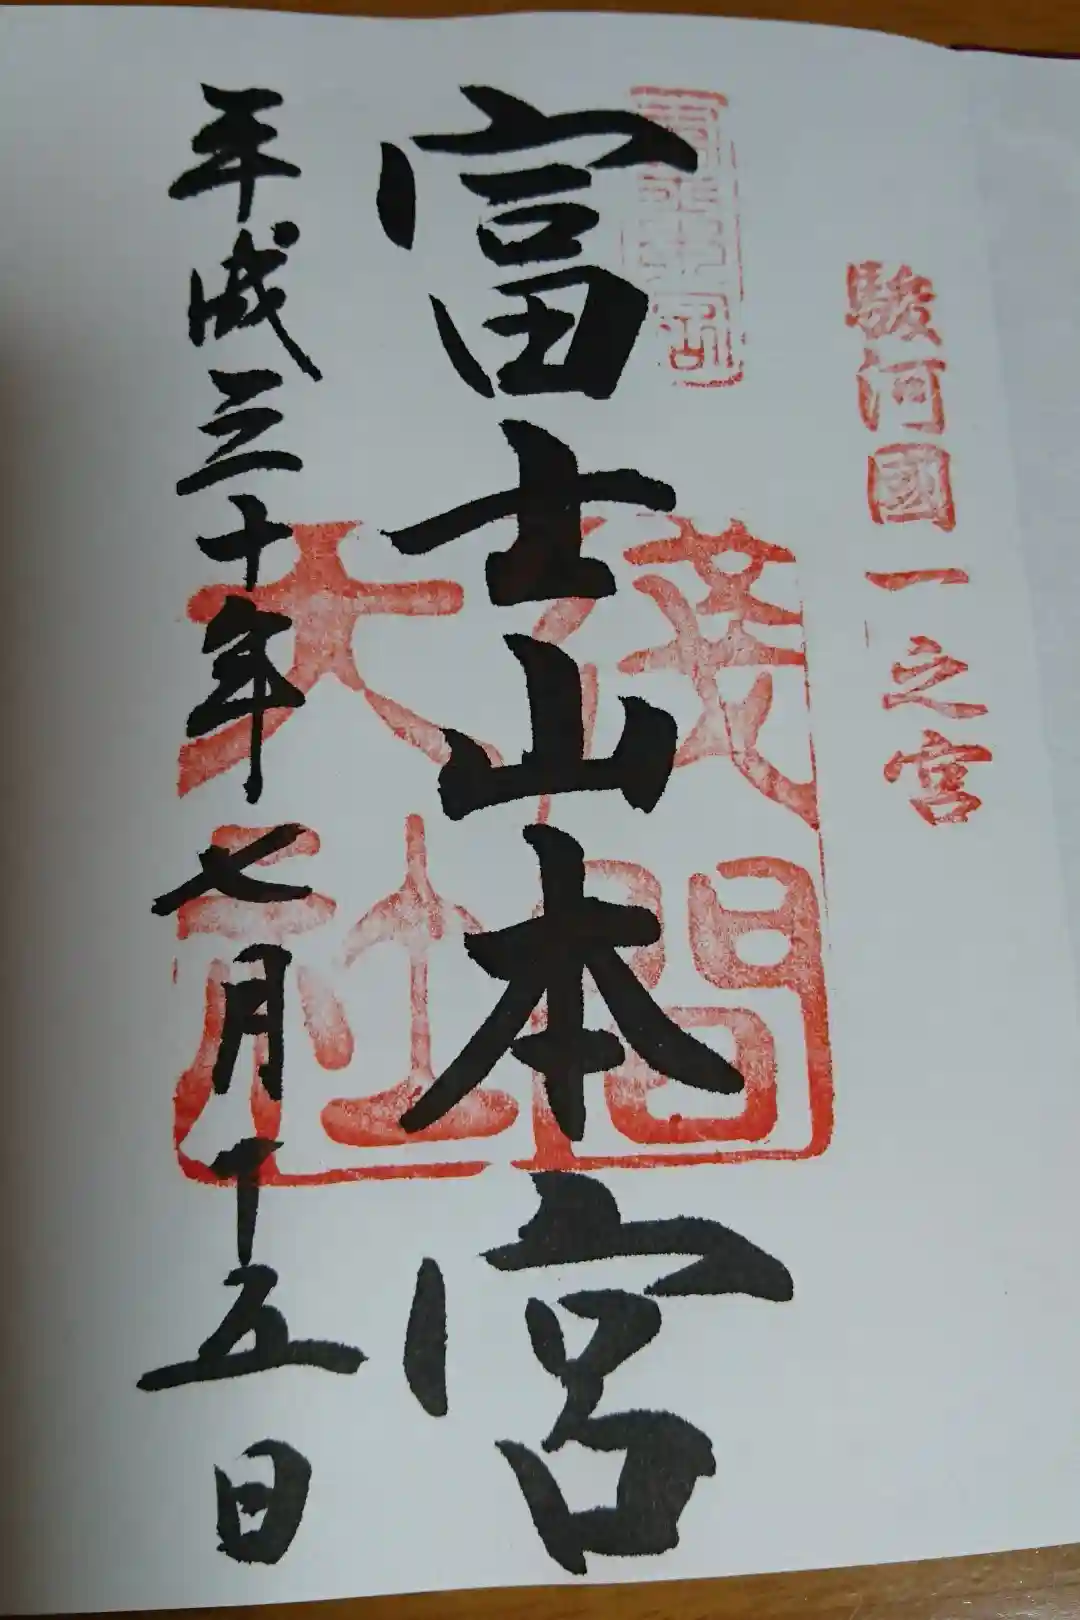 駿河國一之宮
富士山本宮
淺間
大社
平成三十年七月十五日